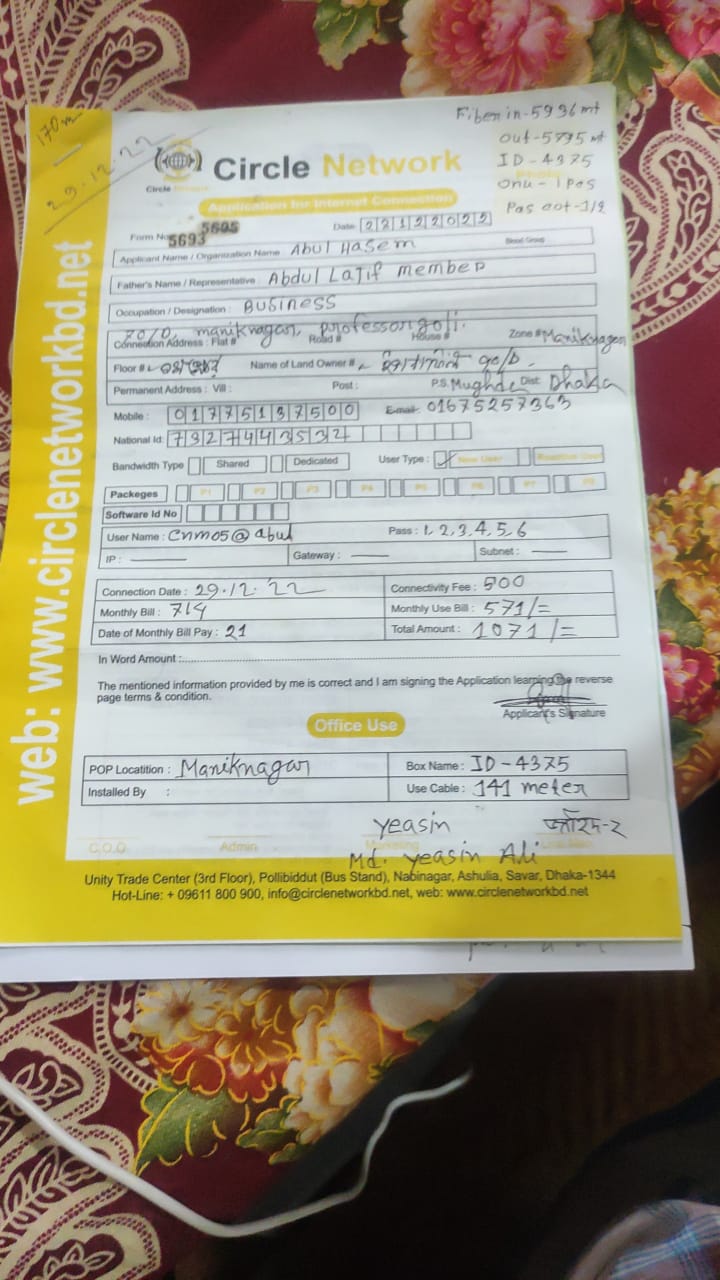 170m
29.12.22
Fiber in-5936 mt
out-5795 mt
ID-4375
onu-1 pas
Pas oot-1/2
Circle Network
Circle Network
Application for Internet Connection
Date: 22122022
5605
Form No 5693
Applicant Name / Organization Name Abul Hasem Blood Group:
Father's Name / Representative: Abdul Lajif member
Occupation / Designation: Business
70/0, maniknagar, professor goli.
Connection Address: Flat # Road # House # Zone # Maniknagar
Floor # Name of Land Owner #
Permanent Address: Vill: Post: P.S. Mughda Dist: Dhaka
Mobile: 01775137500 E-mail: 01675257363
National Id: 7327443532
Bandwidth Type Shared Dedicated User Type: New User
Packeges P1 P2 P3 P4 P5 P6 P7 P8
Software Id No
User Name: Cnm05@abul Pass: 1,2,3,4,5,6
IP: Gateway: Subnet:
Connection Date: 29.12.'22 Connectivity Fee: 500
Monthly Bill: 714 Monthly Use Bill: 571/=
Date of Monthly Bill Pay: 21 Total Amount: 1071/=
In Word Amount:
The mentioned information provided by me is correct and I am signing the Application learning the reverse
page terms & condition.
Applicant's Signature
Office Use
POP Locatition: Maniknagar Box Name: ID-4375
Installed By : Use Cable: 141 meter
Yeasin
C.O.O. Admin Marketing
Md. Yeasin Ali
Unity Trade Center (3rd Floor), Pollibiddut (Bus Stand), Nabinagar, Ashulia, Savar, Dhaka-1344
Hot-Line: + 09611 800 900, info@circlenetworkbd.net, web: www.circlenetworkbd.net
web: www.circlenetworkbd.net